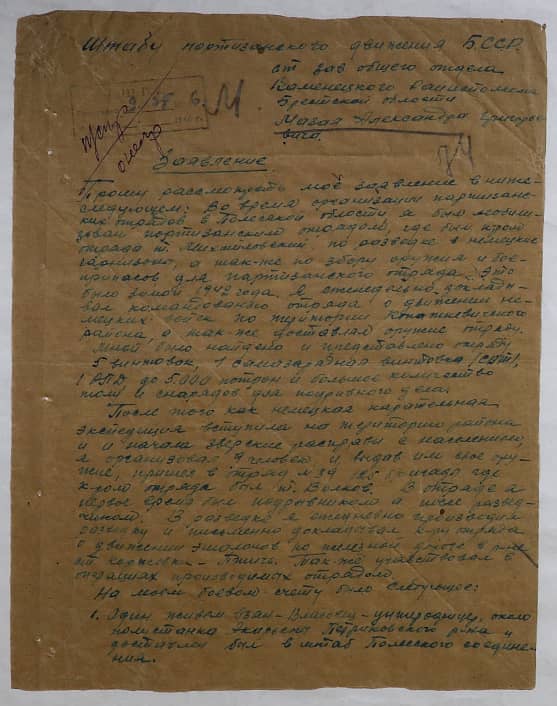 Штабу партизанского движения БССР.
от зав общего отдела
Каменецкого Райисполкома
Брестской области
Мазая Александра Григорь-
евича.
Заявление
Прошу рассмотреть моё заявление в ниже-
следующем: Во время организации партизанс-
ких отрядов в Полесской области я был
партизанским отрядом, где был к-ром
отряда т. Михайловский, по разведке в немецкие
гарнизоны, а так-же по збору оружия и бое-
припасов для партизанского отряда. Это
было зимой 1942 года. Я еженедельно доклады-
вал командованию отряда о движении не-
мецких войск по территории Копаткевичского
района, а так же доставлял оружие отряду.
Мной было найдено и представлено отряду
5 винтовок, 1 самозарядная винтовка (СВТ),
1 до 5.000 патрон и большое количество
тол и снарядов для подрывного дела.
После того как немецкая карательная
экспедиция вступила на територию района
и начала зверские расправы с населением,
я организовал человек и выдав им свое ору-
жие, пришел в отряд где
к-ром отряда был т. Волков. В отряде я
первое время был подрывником а после развед-
чиком. В разведке я ежедневно производил
разведку и письменно докладывал к-ру отряда
о движении эшелонов по железной дороге в р-не
ст Коржевка - Птичь. Так-же участвовал в
операциях производимых отрядом.
На моем боевом счету было следующее:
1. Один живьем около
Петриковского р-на и
доставлен был в штаб Полесского соедине-
ния.